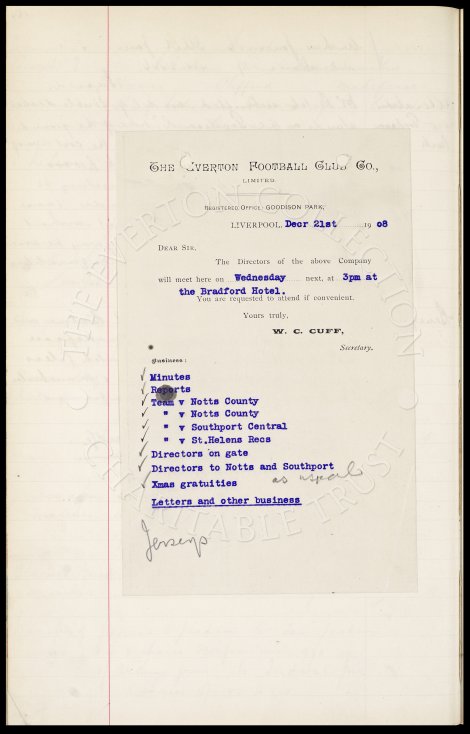 THE EVERTON FOOTBALL CLUB CO.,
LIMITED.
REGISTERED OFFICE: GOODISON PARK,
LIVERPOOL, Decr 21st 1908
DEAR SIR,
The Directors of the above Company
will meet here on Wednesday next, at 3pm at
the Bradford Hotel.
You are requested to attend if convenient.
Yours truly,
W. C. CUFF,
Secretary.
Business:
Minutes
Reports
Team v Notts County
" v Notts County
" v Southport Central
" v St.Helens Recs
Directors on gate
Directors to Notts and Southport
Xmas gratuities as usual
Letters and other business
Jerseys
THE EVERTON COLLECTION
CHARITABLE TRUST